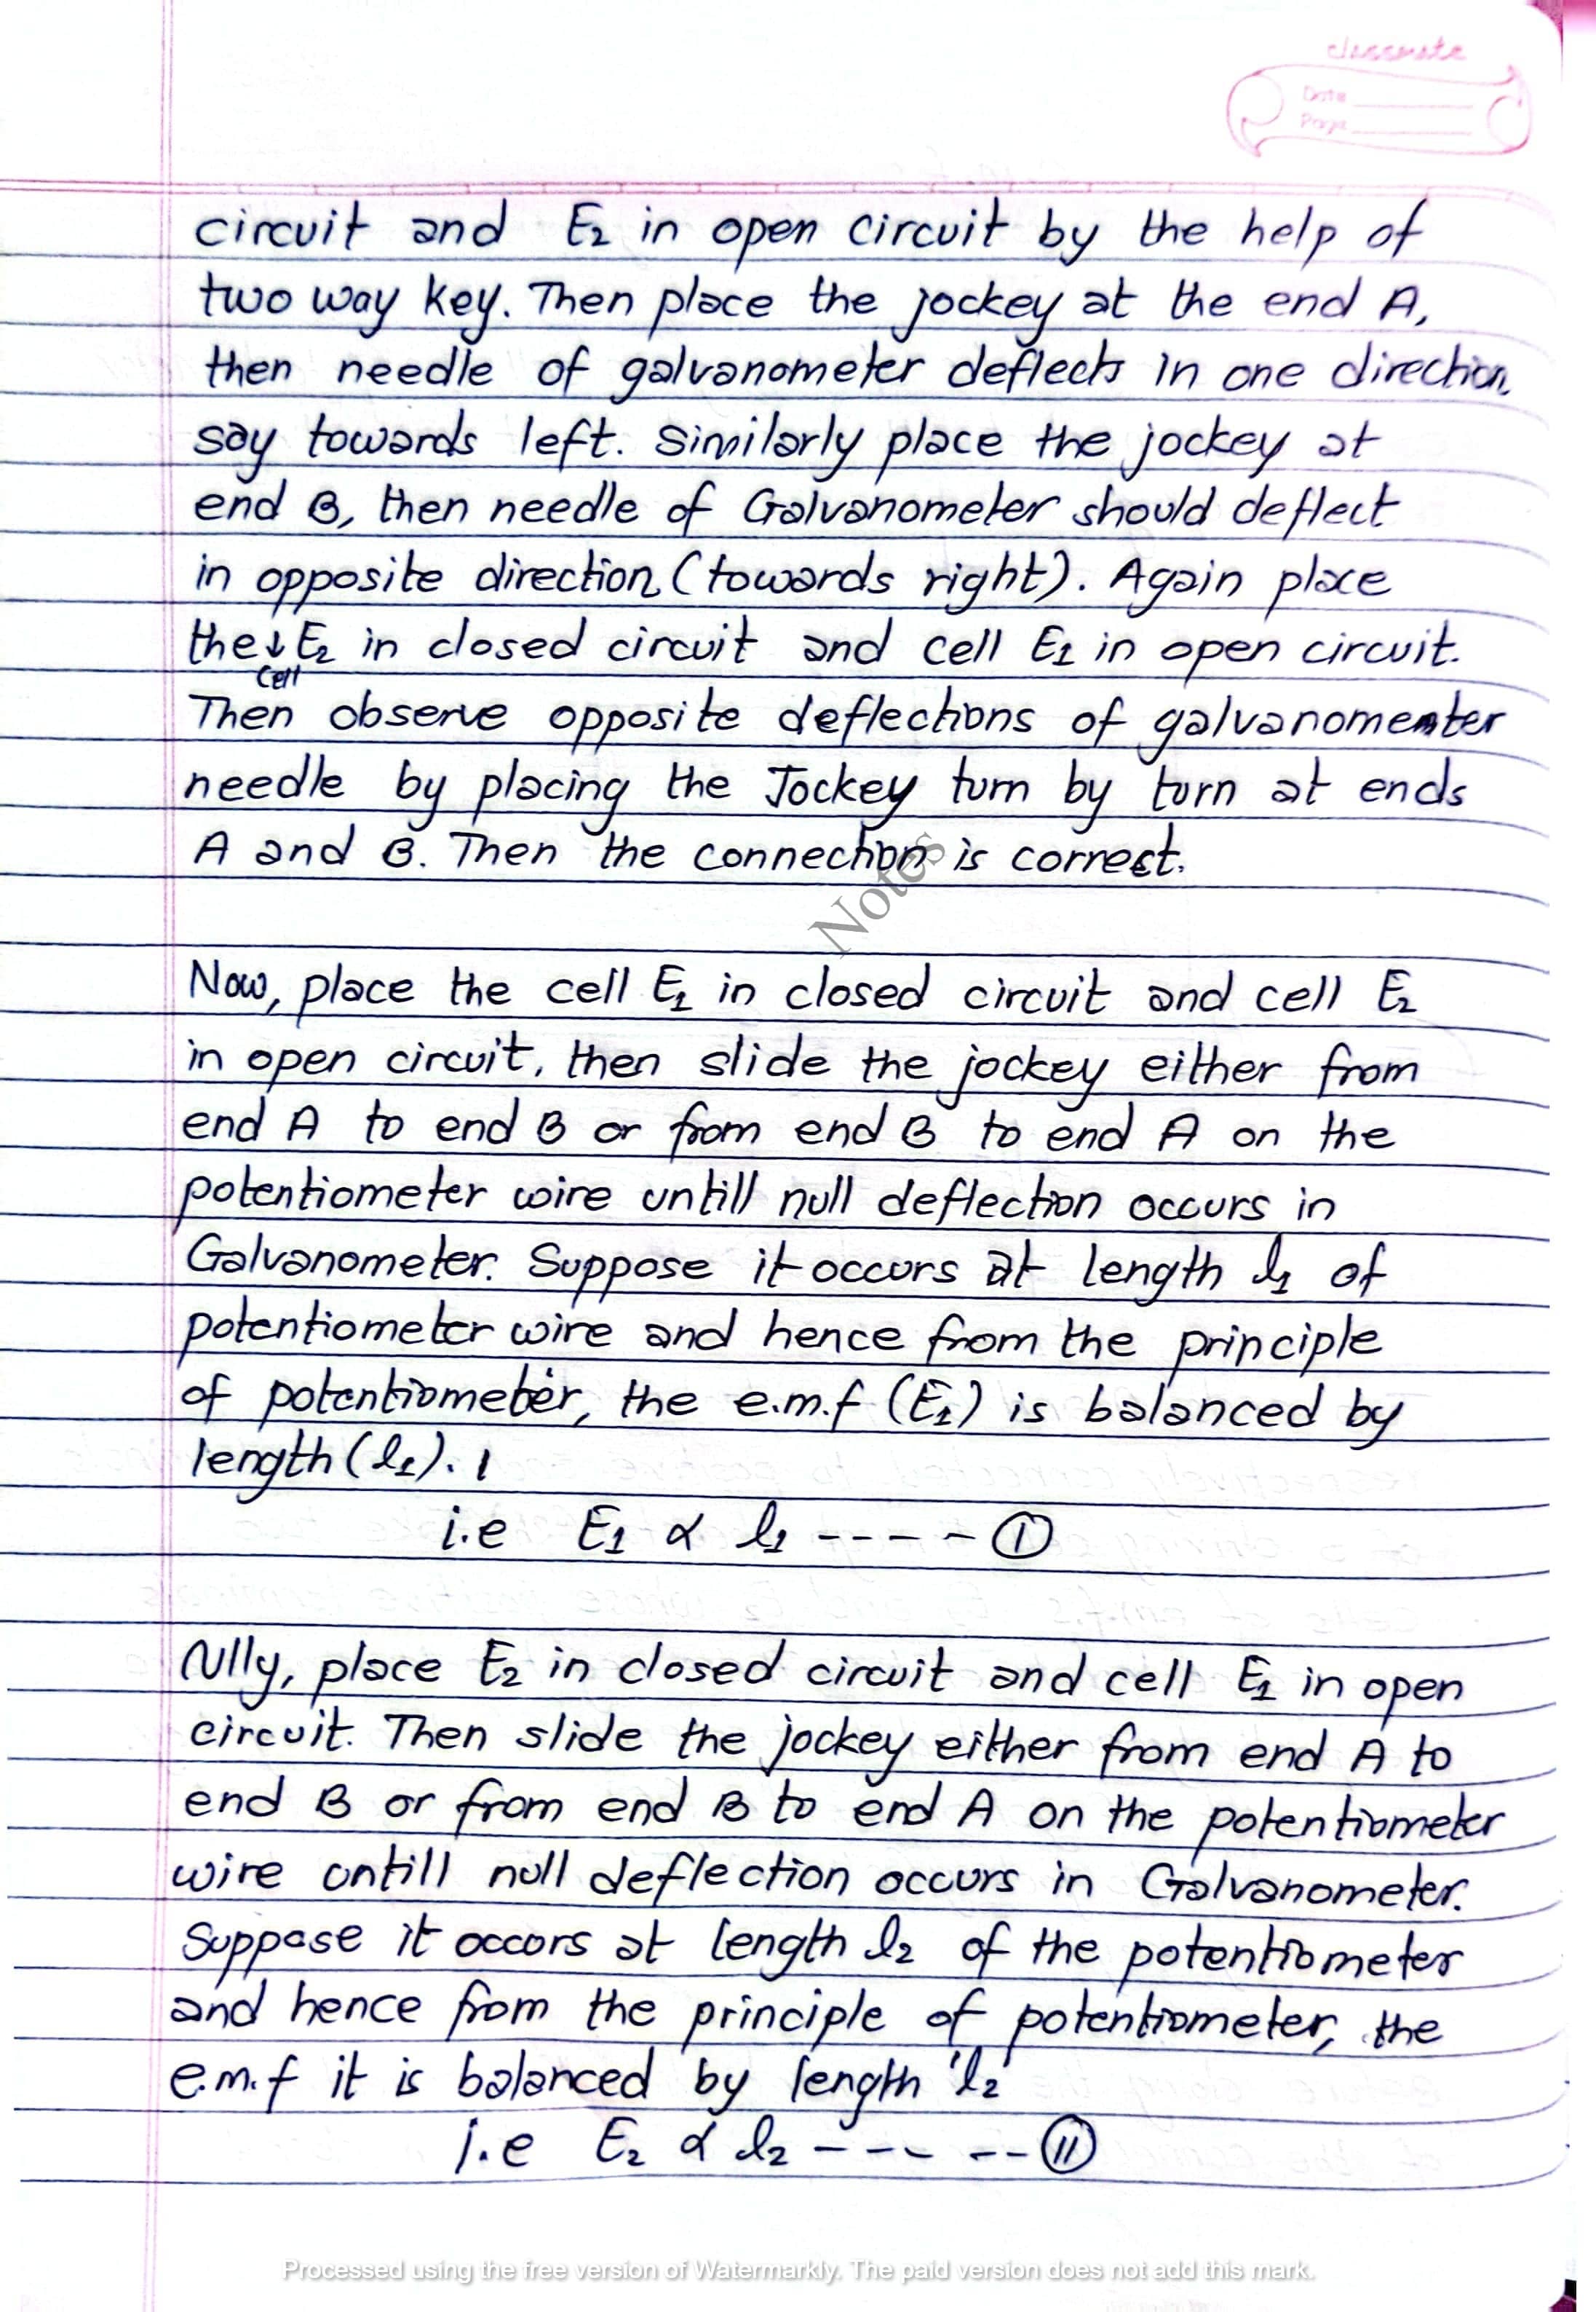 classmate
Date
Page
circuit and E₂ in open circuit by the help of
two way key. Then place the jockey at the end A,
then needle of galvanometer deflects in one direction,
say towards left. Similarly place the jockey at
end B, then needle of Galvanometer should deflect
in opposite direction (towards right). Again place
the ↓ E₂ in closed circuit and cell E₁ in open circuit.
Cell
Then observe opposite deflections of galvanomenter
needle by placing the Jockey turn by turn at ends
A and B. Then the connection is correct.
Notes
Now, place the cell E₁ in closed circuit and cell E₂
in open circuit, then slide the jockey either from
end A to end B or from end B to end A on the
potentiometer wire untill null deflection occurs in
Galvanometer. Suppose it occurs at length l₁ of
potentiometer wire and hence from the principle
of potentiometer, the e.m.f (E₁) is balanced by
length (l₁).
i.e E₁ ∝ l₁ ----- ①
Nlly, place E₂ in closed circuit and cell E₁ in open
circuit. Then slide the jockey either from end A to
end B or from end B to end A on the potentiometer
wire untill null deflection occurs in Galvanometer.
Suppose it occurs at length l₂ of the potentiometer
and hence from the principle of potentiometer, the
e.m.f it is balanced by length 'l₂'
i.e E₂ ∝ l₂ ---- -- ⑪
Processed using the free version of Watermarkly. The paid version does not add this mark.